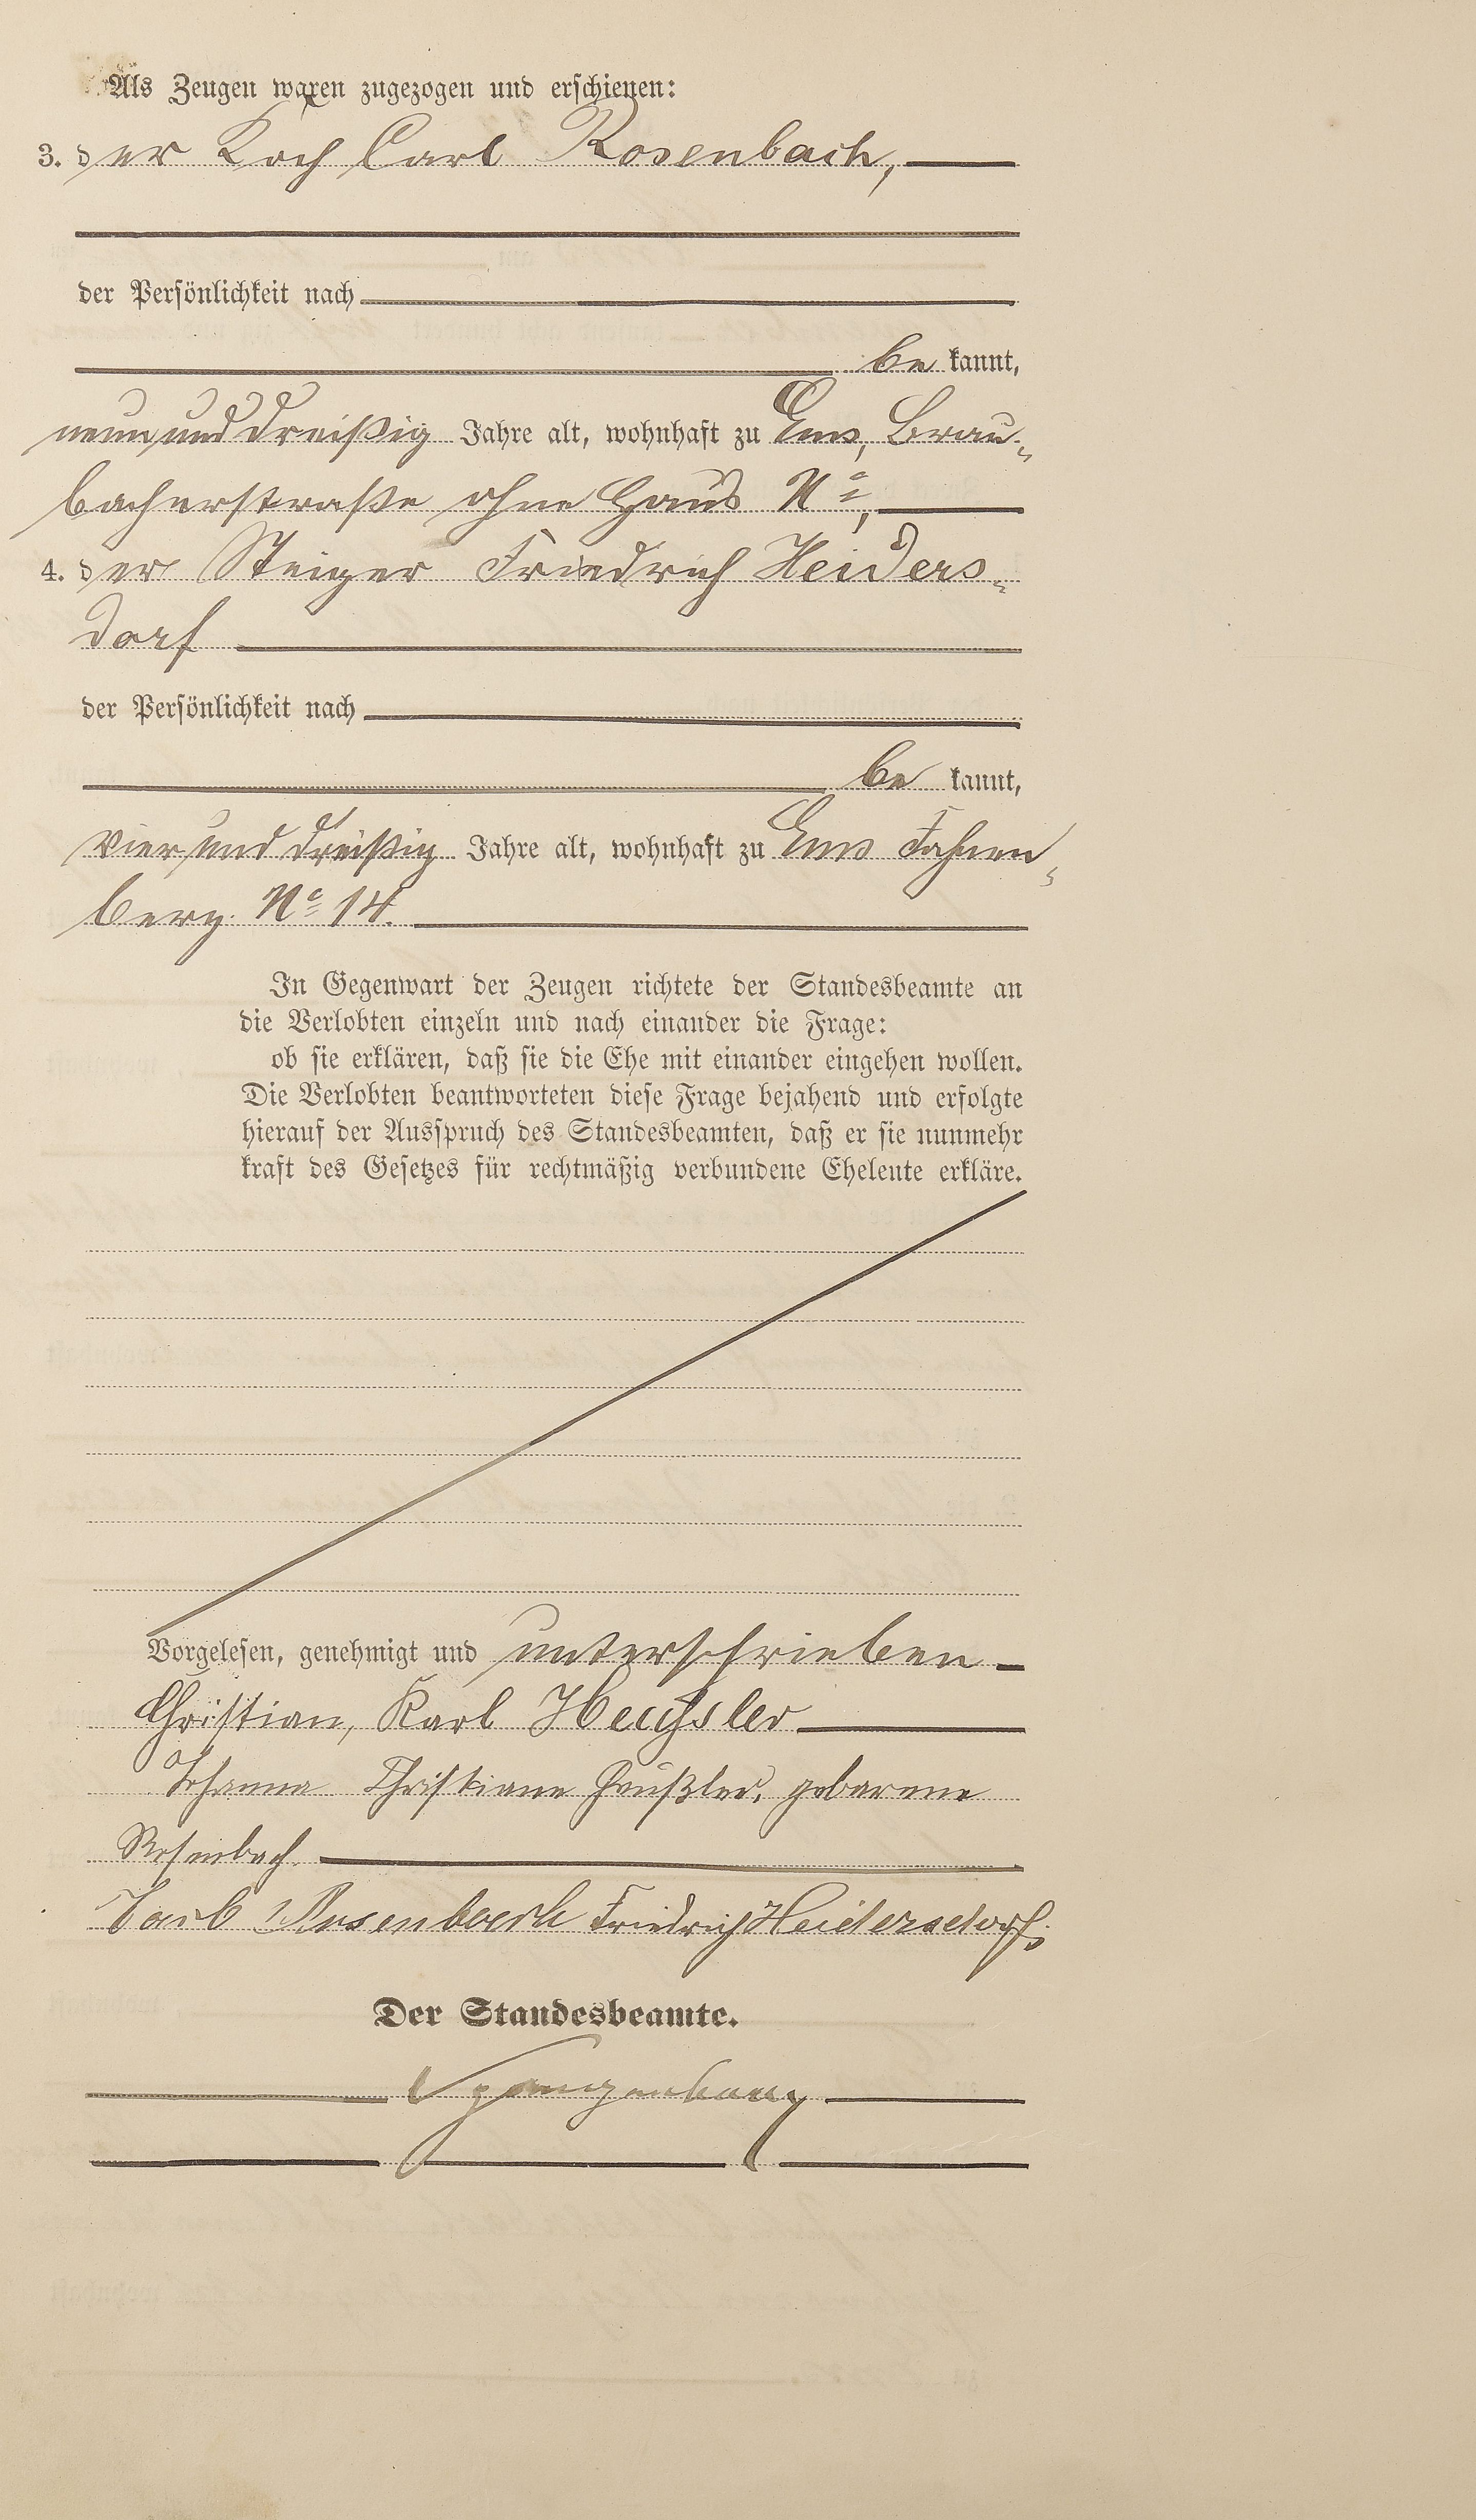 Als Zeugen waren zugezogen und erschienen:
3. der Koch Carl Rosenbach,
der Persönlichkeit nach
be kannt,
neun und dreißig Jahre alt, wohnhaft zu Ems, Brau-
bacherstraße ohne Haus No,
4. der Steiger Friedrich Heiders-
dorf
der Persönlichkeit nach
be kannt,
vier und dreißig Jahre alt, wohnhaft zu Ems Fahnen-
berg No 14.
In Gegenwart der Zeugen richtete der Standesbeamte an
die Verlobten einzeln und nach einander die Frage:
ob sie erklären, daß sie die Ehe mit einander eingehen wollen.
Die Verlobten beantworteten diese Frage bejahend und erfolgte
hierauf der Ausspruch des Standesbeamten, daß er sie nunmehr
kraft des Gesetzes für rechtmäßig verbundene Eheleute erkläre.
Vorgelesen, genehmigt und unterschrieben
Christian, Karl
Johanna Christiane geborene
Rosenbach.
Carl Rosenbach Friedrich Heidersdorf.
Der Standesbeamte.